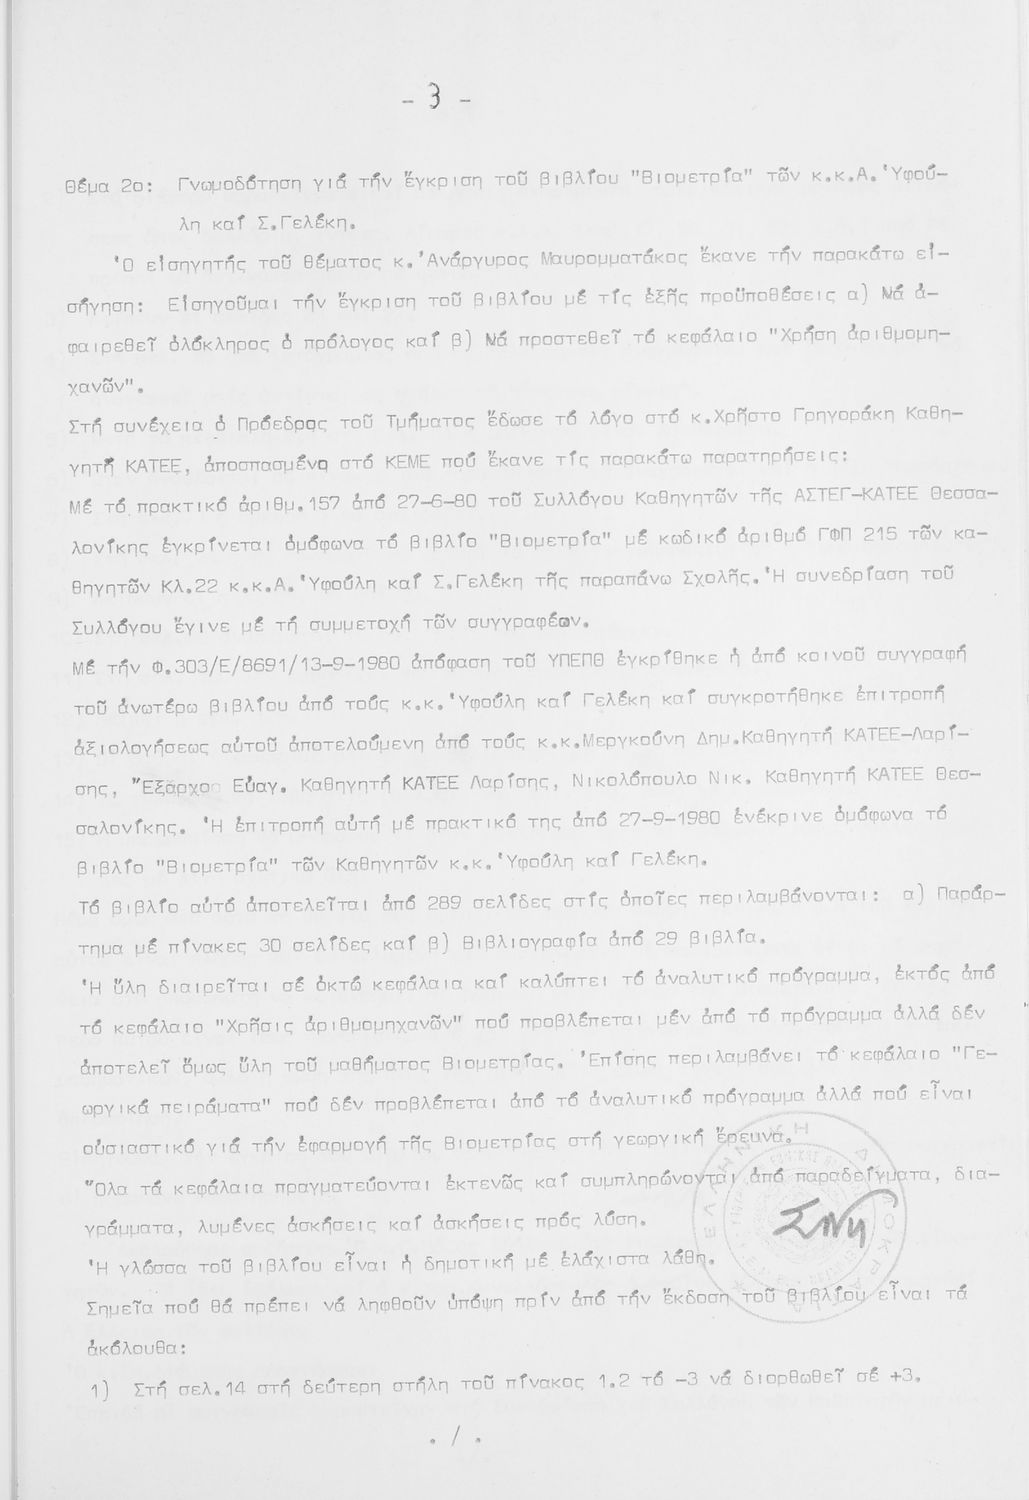 - 3 -
Θέμα 2ο: Γνωμοδότηση γιά τήν ἔγκριση τοῦ βιβλίου "Βιομετρία" τῶν κ.κ.Α. Ὑφού-
λη καί Σ.Γελέκη.
Ὁ εἰσηγητής τοῦ θέματος κ.Ἀνάργυρος Μαυρομματάκος ἔκανε τήν παρακάτω εἰ-
σήγηση: Εἰσηγοῦμαι τήν ἔγκριση τοῦ βιβλίου μέ τίς ἑξῆς προϋποθέσεις α) Νά ἀ-
φαιρεθεῖ ὁλόκληρος ὁ πρόλογος καί β) Νά προστεθεῖ τό κεφάλαιο "Χρήση ἀριθμομη-
χανῶν".
Στή συνέχεια ὁ Πρόεδρος τοῦ Τμήματος ἔδωσε τό λόγο στό κ.Χρῆστο Γρηγοράκη Καθη-
γητή ΚΑΤΕΕ, ἀποσπασμένο στό ΚΕΜΕ πού ἔκανε τίς παρακάτω παρατηρήσεις:
Μέ τό πρακτικό ἀριθμ.157 ἀπό 27-6-80 τοῦ Συλλόγου Καθηγητῶν τῆς ΑΣΤΕΓ-ΚΑΤΕΕ Θεσσα-
λονίκης ἐγκρίνεται ὁμόφωνα τό βιβλίο "Βιομετρία" μέ κωδικό ἀριθμό ΓΦΠ 215 τῶν κα-
θηγητῶν Κλ.22 κ.κ.Α. Ὑφούλη καί Σ.Γελέκη τῆς παραπάνω Σχολῆς. Ἡ συνεδρίαση τοῦ
Συλλόγου ἔγινε μέ τή συμμετοχή τῶν συγγραφέων.
Μέ τήν Φ.303/Ε/8691/13-9-1980 ἀπόφαση τοῦ ΥΠΕΠΘ ἐγκρίθηκε ἡ ἀπό κοινοῦ συγγραφή
τοῦ ἀνωτέρω βιβλίου ἀπό τούς κ.κ. Ὑφούλη καί Γελέκη καί συγκροτήθηκε ἐπιτροπή
ἀξιολογήσεως αὐτοῦ ἀποτελούμενη ἀπό τούς κ.κ.Μεργκούνη Δημ.Καθηγητή ΚΑΤΕΕ-Λαρί-
σης, Ἔξαρχο Εὐαγ. Καθηγητή ΚΑΤΕΕ Λαρίσης, Νικολόπουλο Νικ. Καθηγητή ΚΑΤΕΕ Θεσ-
σαλονίκης. Ἡ ἐπιτροπή αὐτή μέ πρακτικό της ἀπό 27-9-1980 ἐνέκρινε ὁμόφωνα τό
βιβλίο "Βιομετρία" τῶν Καθηγητῶν κ.κ. Ὑφούλη καί Γελέκη.
Τό βιβλίο αὐτό ἀποτελεῖται ἀπό 289 σελίδες στίς ὁποῖες περιλαμβάνονται: α) Παράρ-
τημα μέ πίνακες 30 σελίδες καί β) Βιβλιογραφία ἀπό 29 βιβλία.
Ἡ ὕλη διαιρεῖται σέ ὀκτώ κεφάλαια καί καλύπτει τό ἀναλυτικό πρόγραμμα, ἐκτός ἀπό
τό κεφάλαιο "Χρῆσις ἀριθμομηχανῶν" πού προβλέπεται μέν ἀπό τό πρόγραμμα ἀλλά δέν
ἀποτελεῖ ὅμως ὕλη τοῦ μαθήματος Βιομετρίας. Ἐπίσης περιλαμβάνει τό κεφάλαιο "Γε-
ωργικά πειράματα" πού δέν προβλέπεται ἀπό τό ἀναλυτικό πρόγραμμα ἀλλά πού εἶναι
οὐσιαστικό γιά τήν ἐφαρμογή τῆς Βιομετρίας στή γεωργική ἔρευνα.
Ὅλα τά κεφάλαια πραγματεύονται ἐκτενῶς καί συμπληρώνονται ἀπό παραδείγματα, δια-
γράμματα, λυμένες ἀσκήσεις καί ἀσκήσεις πρός λύση.
Ἡ γλῶσσα τοῦ βιβλίου εἶναι ἡ δημοτική μέ ἐλάχιστα λάθη.
Σημεῖα πού θά πρέπει νά ληφθοῦν ὑπόψη πρίν ἀπό τήν ἔκδοση τοῦ βιβλίου εἶναι τά
ἀκόλουθα:
1) Στή σελ.14 στή δεύτερη στήλη τοῦ πίνακος 1.2 τό -3 νά διορθωθεῖ σέ +3.
. / .